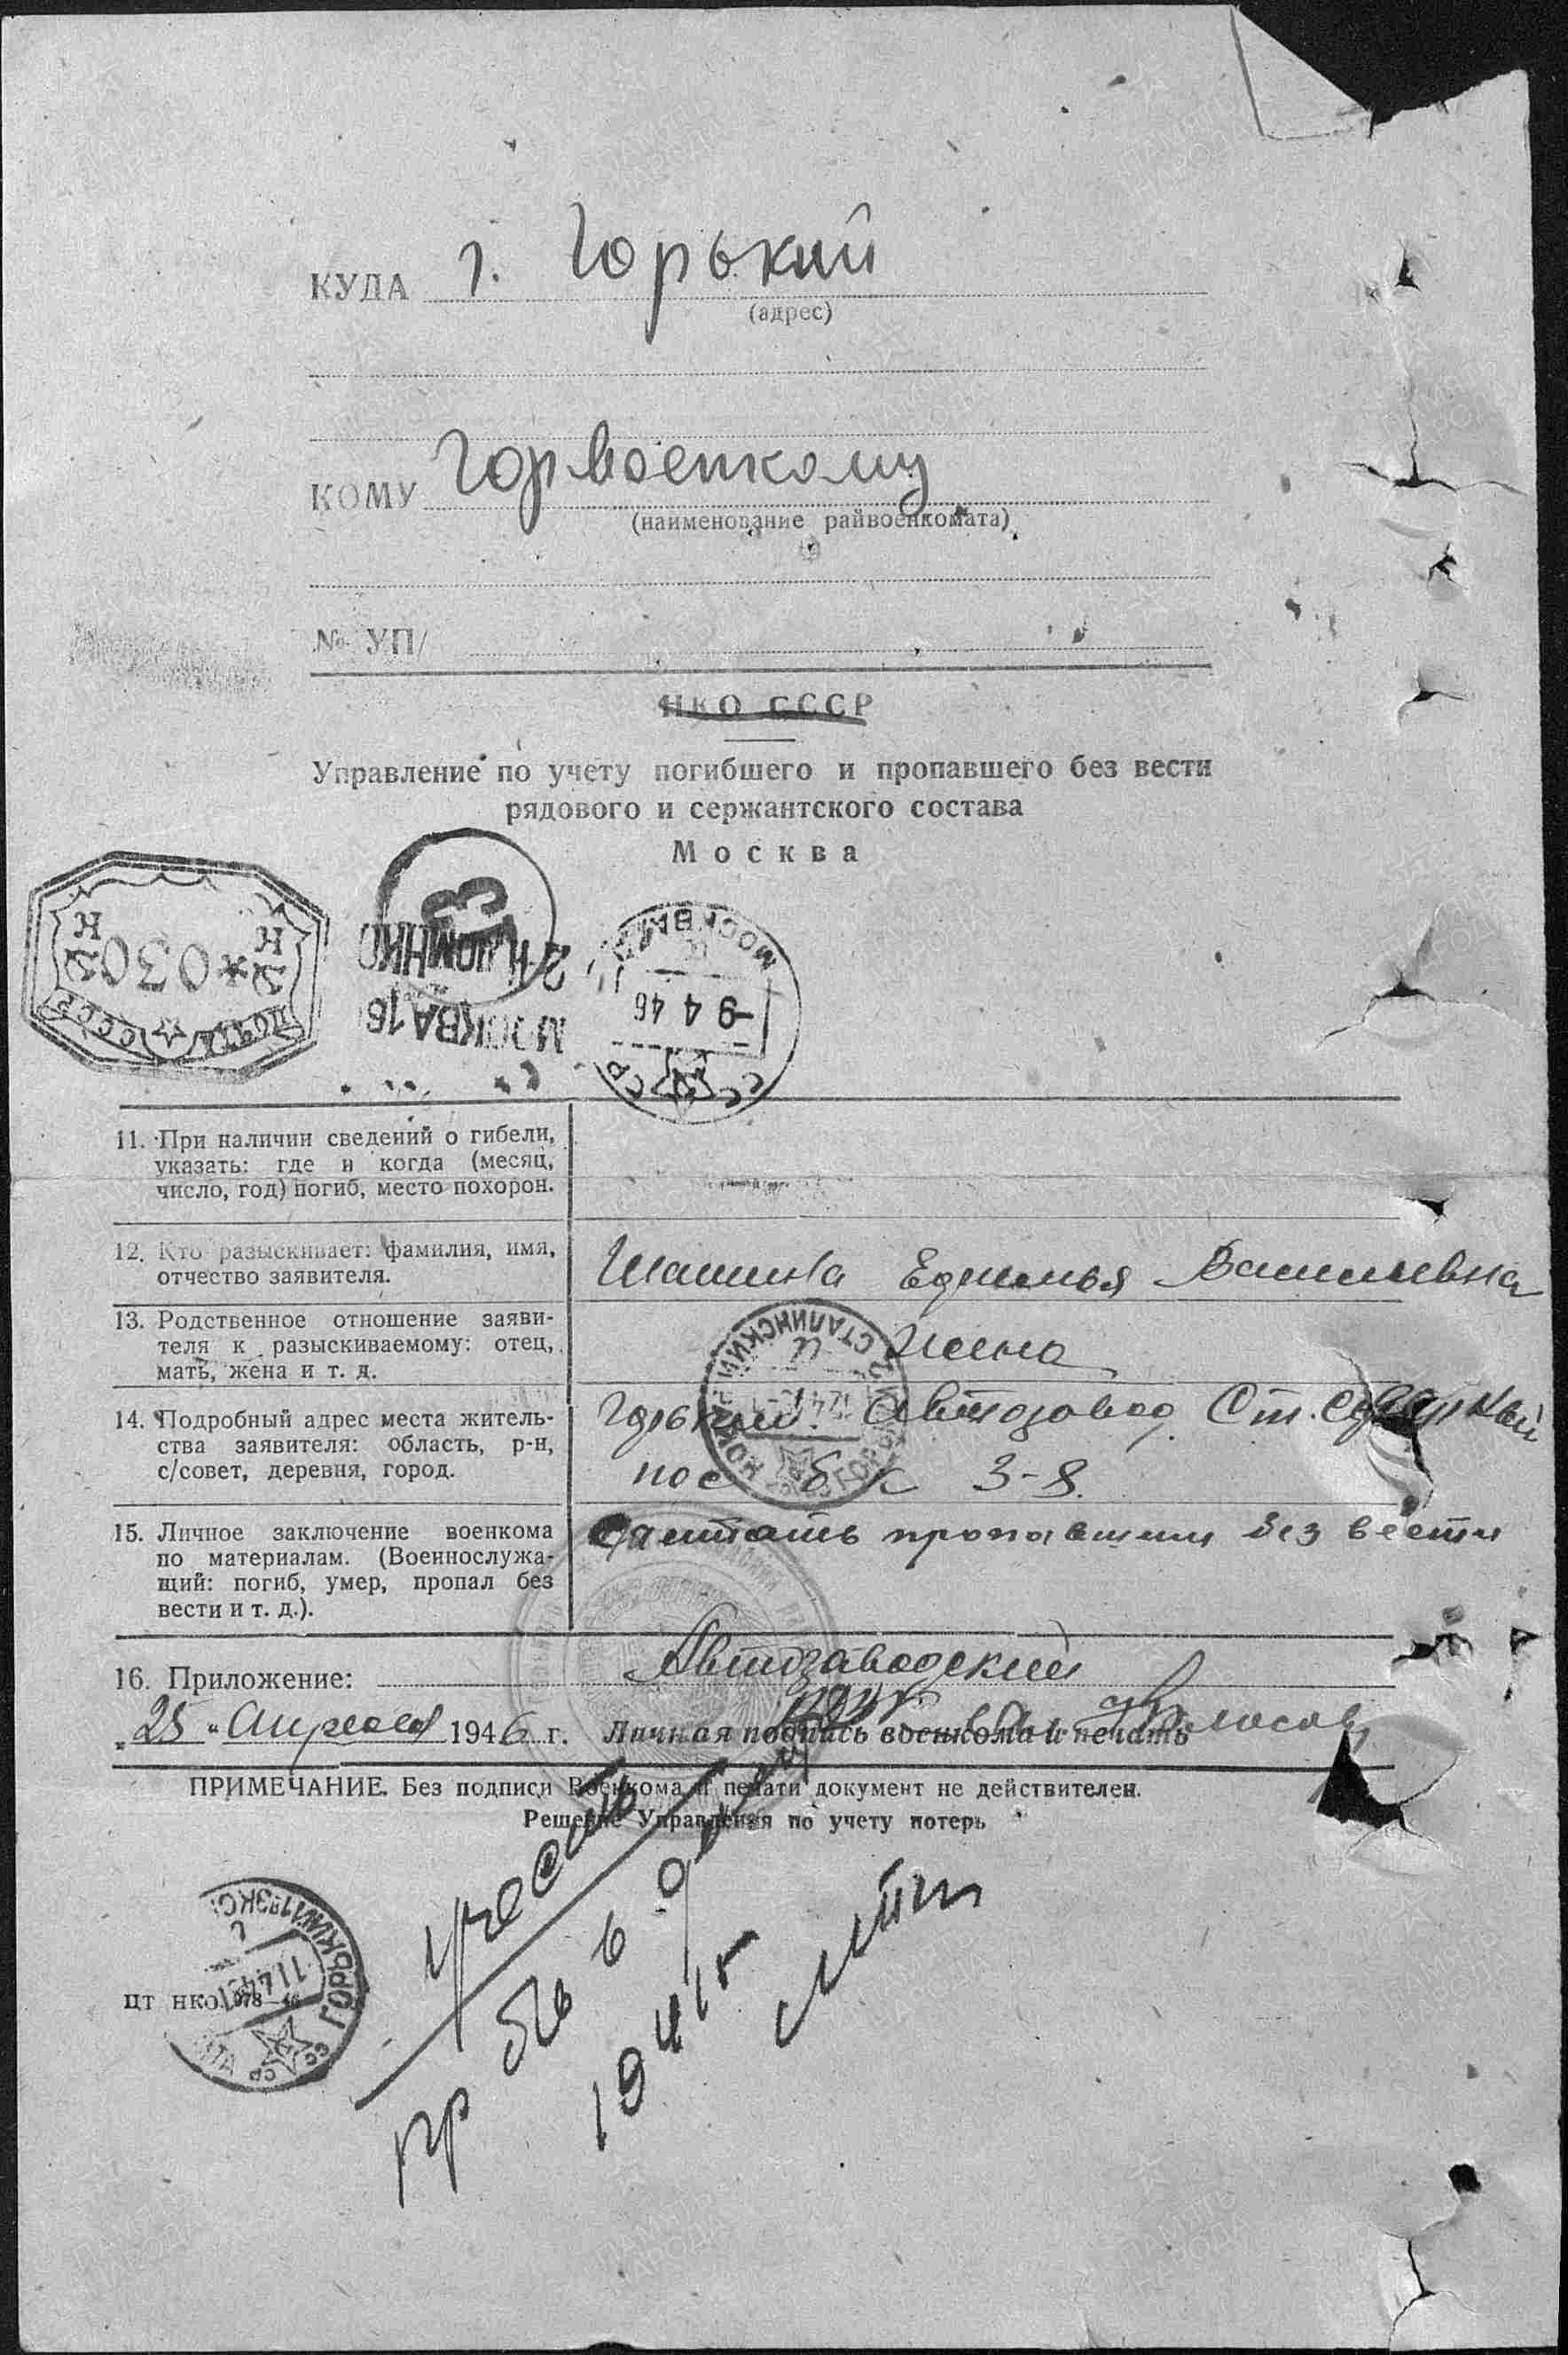 КУДА г. Горький
(адрес)
КОМУ Горвоенкому
(наименование райвоенкомата)
№ УП/
НКО СССР
Управление по учету погибшего и пропавшего без вести
рядового и сержантского состава
Москва
ПОЧТА СССР
*030
МОСКВА 16
МОСКВА
-9 4 46
СССР
11. При наличии сведений о гибели,
указать: где и когда (месяц,
число, год) погиб, место похорон.
12. Кто разыскивает: фамилия, имя,
отчество заявителя.
Шашина Васильевна
13. Родственное отношение заяви-
теля к разыскиваемому: отец,
мать, жена и т. д.
Жена
14. Подробный адрес места житель-
ства заявителя: область, р-н,
с/совет, деревня, город.
Горький Автозавод Ст.
пос 3-8.
15. Личное заключение военкома
по материалам. (Военнослужа-
щий: погиб, умер, пропал без
вести и т. д.).
Считать пропавшим без вести
16. Приложение:
Автозаводский
„25“ Апреля 1946 г. Личная подпись военкома и печать
ПРИМЕЧАНИЕ. Без подписи Военкома и печати документ не действителен.
Решение Управления по учету потерь
Учесть
пр б/в в
1941 г
ЦТ НКО